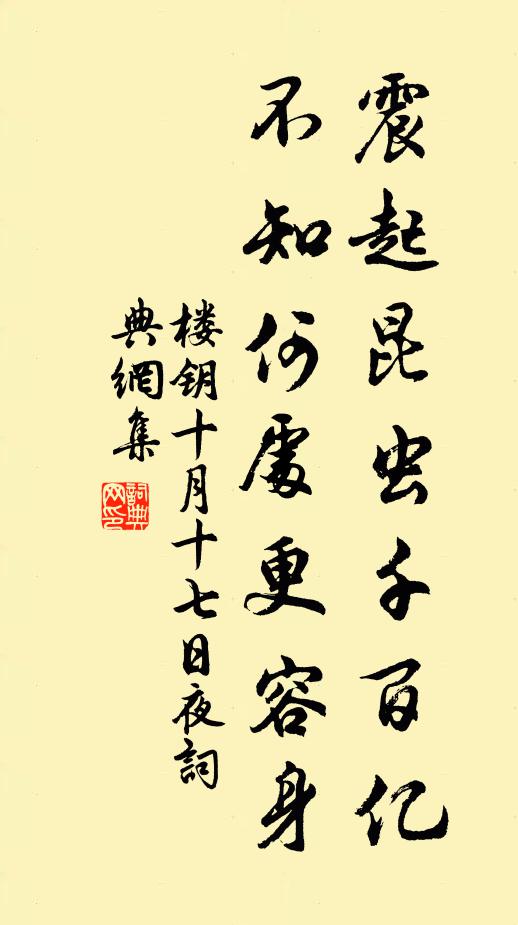 震起昆虫千百亿
不知何處更容身
楼钥十月十七日夜詞
典網集
詞典网印